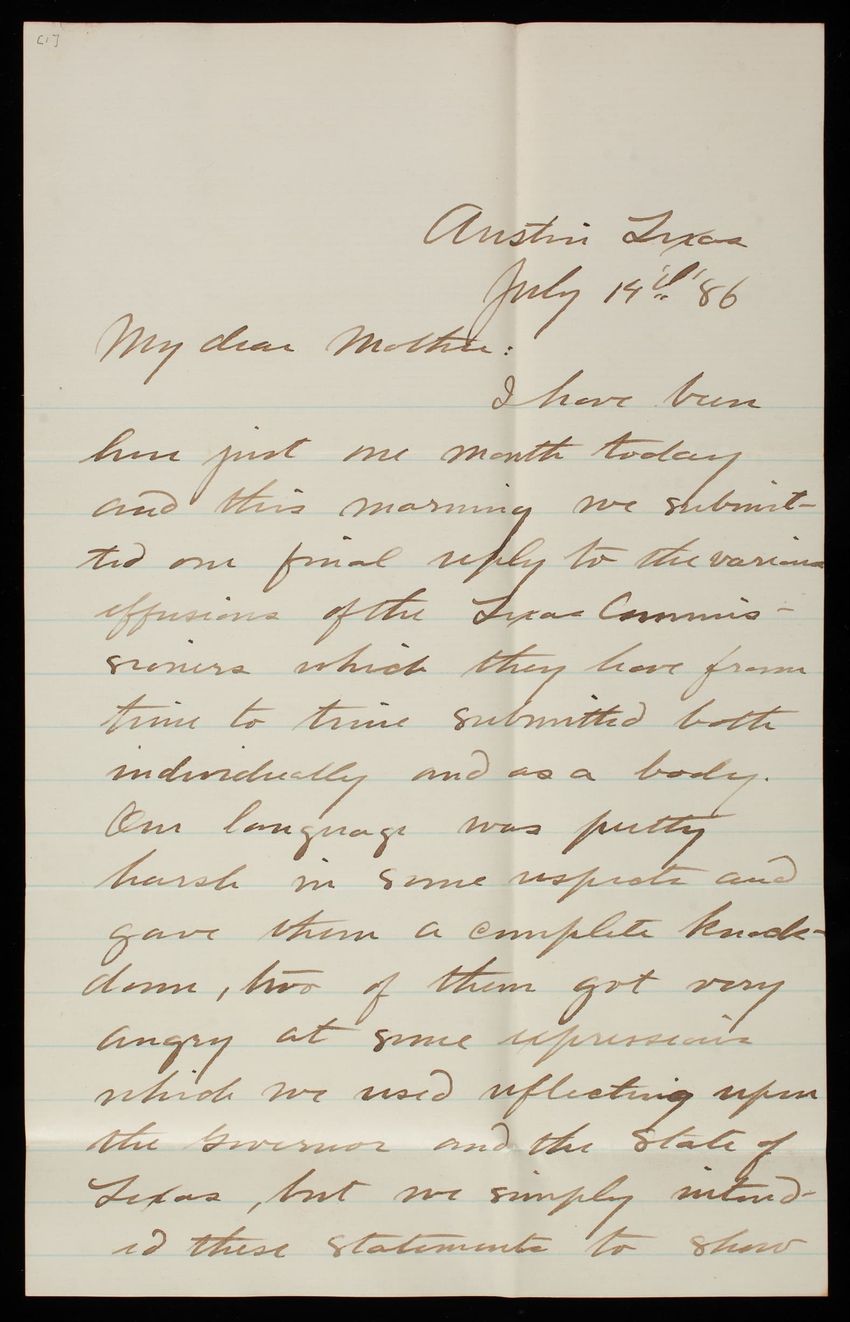 [1]
Austin Texas
July 14th '86
My dear Mother:
I have been
here just one month today
and this morning we submit-
ted our final reply to the various
effusions of the Texas Commis-
sioners which they have from
time to time submitted both
individually and as a body.
Our language was pretty
harsh in some respects and
gave them a complete knock-
down, two of them got very
angry at some expressions
which we used reflecting upon
the Governor and the State of
Texas, but we simply intend-
ed these statements to show